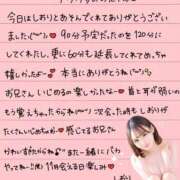 今日はしおりとあそんでくれてありがとうござい
ました(^^) ♥ 90分予定だったのを120分に
してくれたし、更に60分も延長してくれてめっちゃ
嬉しかったよ~ 本当にありがとうね(^^)
お兄さんいじめるの楽しかったな ♥ 首と耳が弱いの
もう覚えちゃったからね
たくさんいじめちゃお ♥ 感じてるお兄さん
かわいすぎたからね ♥ また一緒にバカ
やってねー 11月会える日楽しみ ♥
しおり